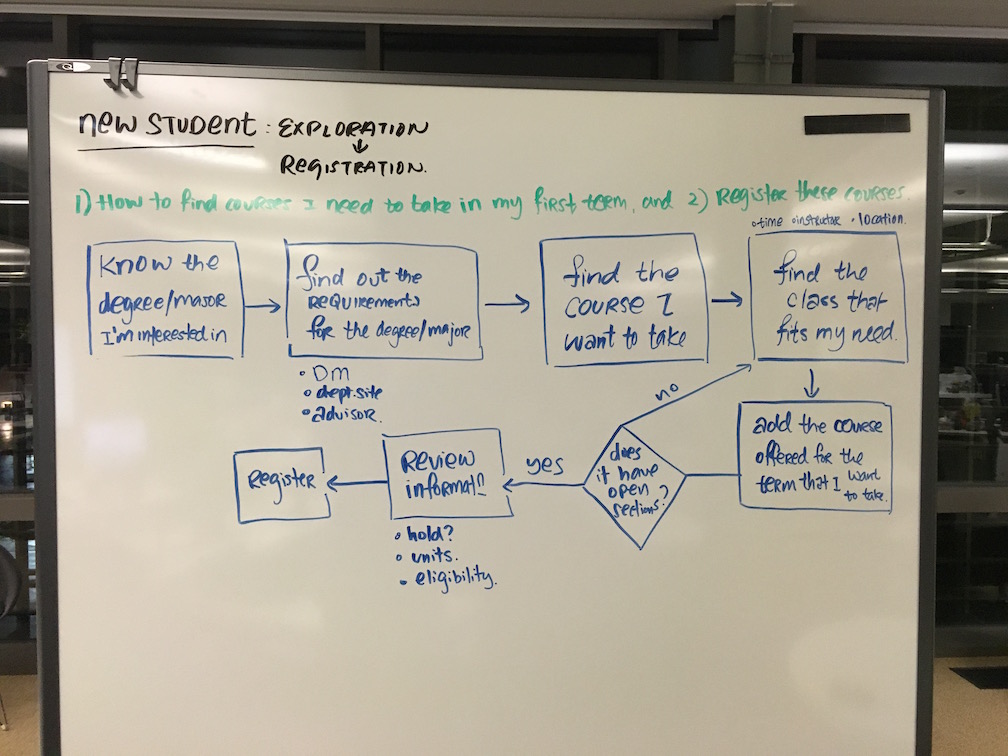 new STUDENT : EXPLORATION
↓
REGISTRATION.
1) How to find courses I need to take in my first term, and 2) Register these courses.
•time •instructor •location.
Know the
degree/major
I'm interested in
find out the
REQUIREMENTS
for the degree/major
• DM
• dept.site
• advisor.
find the
COURSE I
want to take
find the
class that
fits my need.
no
add the course
offered for the
term that I want
to take.
does
it have
open
sections?
yes
Review
informat
• hold?
• units.
• eligibility.
Register